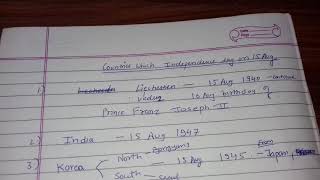 Countries which Independence day on 15 Aug.
1) Liechesten - 15 Aug 1940
vaduz 16 Aug birthday of
Prince Franz Joseph II
2) India - 15 Aug 1947
3) Korea North Pyongyang - 15 Aug 1945 - From Japan,
South - Seoul